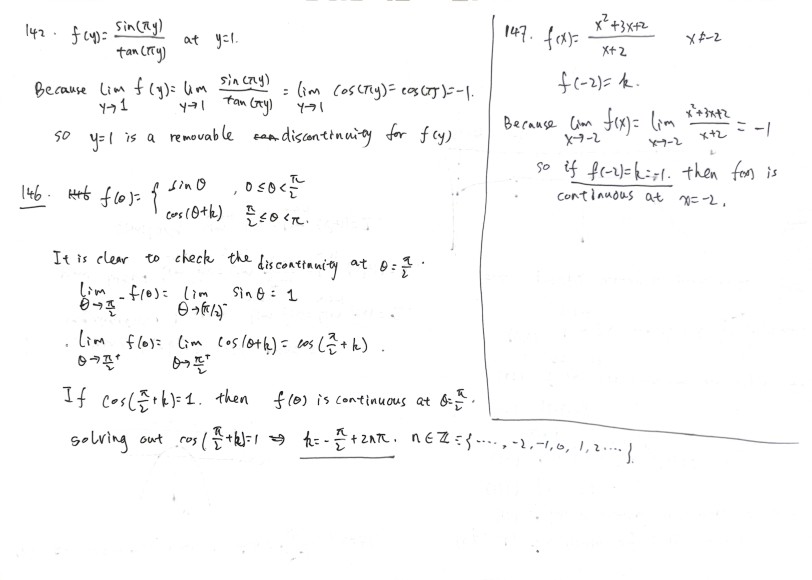 142. f(y)= sin(πy)/tan(πy) at y=1.
Because lim y→1 f(y)= lim y→1 sin(πy)/tan(πy) = lim y→1 cos(πy)=cos(π)=-1.
so y=1 is a removable discontinuity for f(y)
146. f(θ)= { sinθ , 0≤θ<π/2
cos(θ+k) π/2≤θ<π.
It is clear to check the discontinuity at θ=π/2.
lim θ→π/2⁻ f(θ)= lim θ→(π/2)⁻ sinθ = 1
. lim θ→π/2⁺ f(θ)= lim θ→π/2⁺ cos(θ+k)= cos(π/2+k).
If cos(π/2+k)=1. then f(θ) is continuous at θ=π/2.
solving out cos(π/2+k)=1 ⇒ k=-π/2+2nπ. n∈ℤ={····, -2, -1, 0, 1, 2····}
147. f(x)= x²+3x+2/x+2 x≠-2
f(-2)= k.
Because lim x→-2 f(x)= lim x→-2 x²+3x+2/x+2 = -1
so if f(-2)=k=-1. then f(x) is
continuous at x=-2.